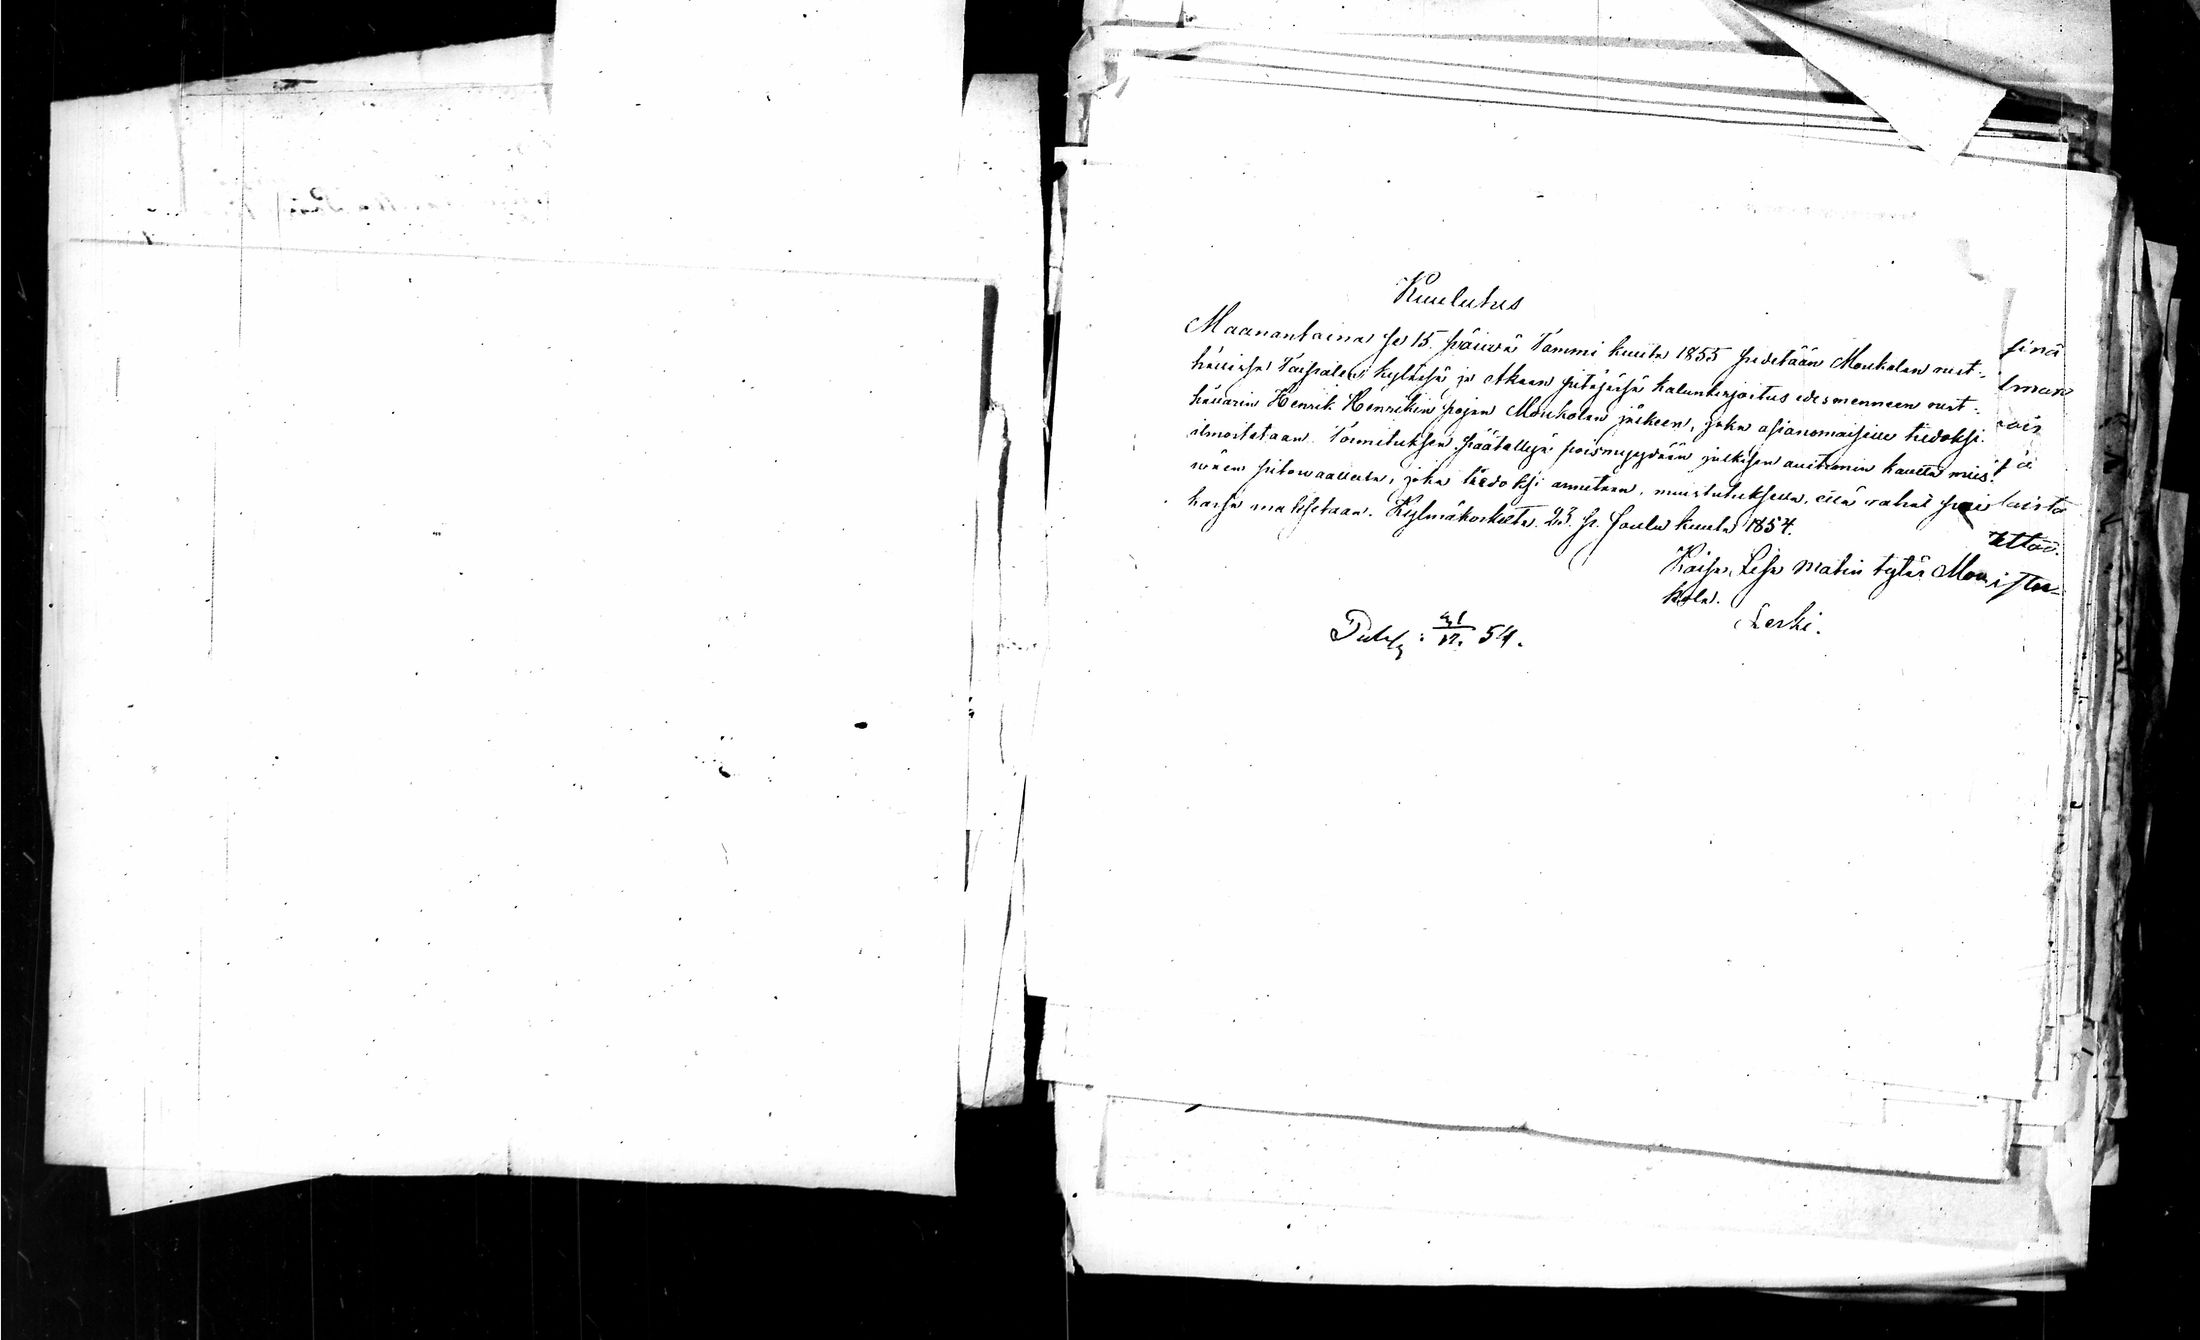 Kuulutus
Maanantaina se 15. päiwä Tammi kuuta 1855 pidetään Moukolan rust-
hållissa Taipaleen kylässä ja Akaan pitäjässä kalunkirjoitus edesmenneen rust-
hållarin Henrik Henrikin pojan Moukolan jälkeen, joka asianomaisille tiedoksi
ilmoitetaan. Toimituksen päätettyä poismyydään julkisen auktionin kautta
pitowaatteita, joka tiedoksi annetaan, muistutuksella, että rahat
maksetaan. Kylmäkoskelta 23. p. Joulu kuuta 1854.
Kaisa Lisa Matin tytär Mou-
kola.
Leski.
54.
sinä
lman
laista